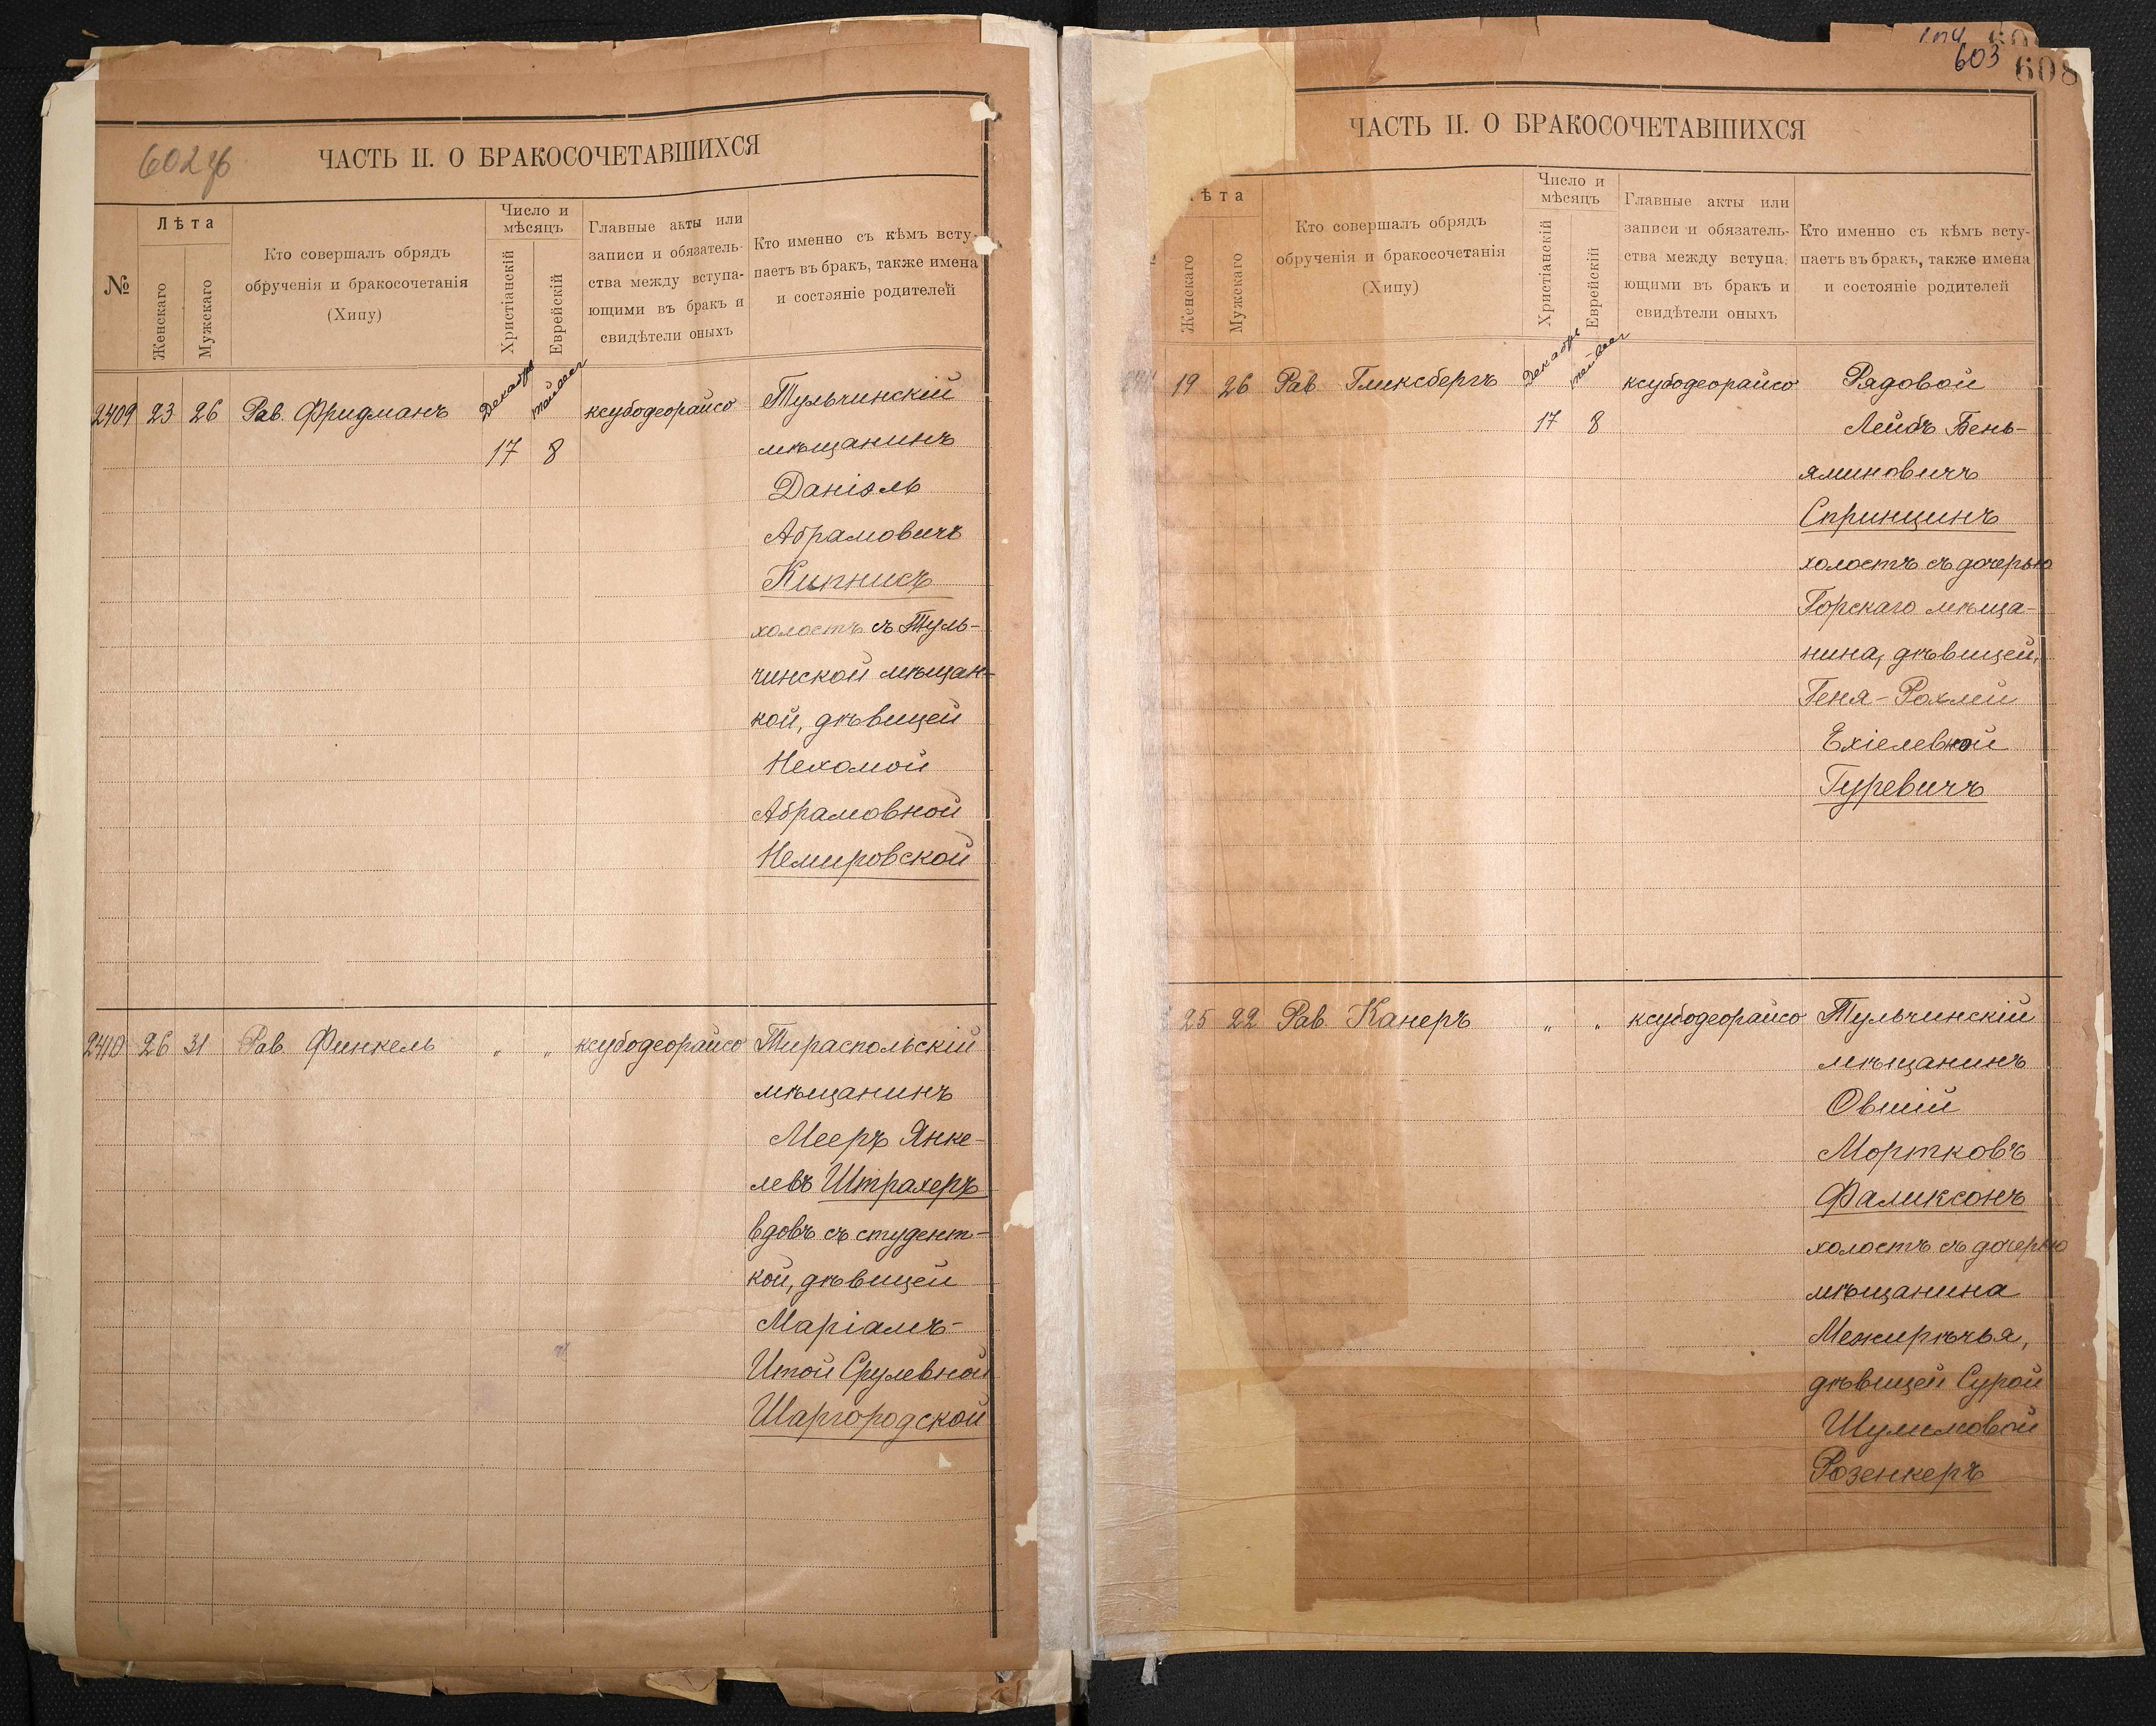 602 об
ЧАСТЬ II. О БРАКОСОЧЕТАВШИХСЯ
№
Лѣта
Женскаго
Мужскаго
Кто совершалъ обрядъ
обрученія и бракосочетанія
(Хипу)
Число и
мѣсяцъ
Христіанскій
Еврейскій
Главные акты или
записи и обязатель-
ства между вступа-
ющими въ бракъ и
свидѣтели оныхъ
Кто именно съ кѣмъ всту-
паетъ въ бракъ, также имена
и состояніе родителей
2409 23 26 Рав. Фридманъ Декабрь 17 8 ксубодеорайсо Тульчинскій
мѣщанинъ
Даніэль
Абрамовичъ
Кипнисъ
холостъ съ Туль-
чинской мѣщан-
кой, дѣвицей
Нехомой
Абрамовной
Немировской
2410 26 31 Рав. Финкель " " ксубодеорайсо Тираспольскій
мѣщанинъ
Мееръ Янке-
левъ Штрахеръ
вдовъ съ студент-
кой, дѣвицей
Маріамъ-
Итой Срулевной
Шаргородской
603
608
ЧАСТЬ II. О БРАКОСОЧЕТАВШИХСЯ
ѣта
Женскаго
Мужскаго
Кто совершалъ обрядъ
обрученія и бракосочетанія
(Хипу)
Число и
мѣсяцъ
Христіанскій
Еврейскій
Главные акты или
записи и обязатель-
ства между вступа-
ющими въ бракъ и
свидѣтели оныхъ
Кто именно съ кѣмъ всту-
паетъ въ бракъ, также имена
и состояніе родителей
19 26 Рав. Гликсбергъ Декабрь 17 8 ксубодеорайсо Рядовой
Лейбъ Бень-
яминовичъ
Спринцинъ
холостъ съ дочерью
Горскаго мѣща-
нина, дѣвицей,
Геня-Рохлей
Ехіелевной
Гуревичъ
25 22 Рав. Канеръ " " ксубодеорайсо Тульчинскій
мѣщанинъ
Овшій
Мортковъ
Фаликсонъ
холостъ съ дочерью
мѣщанина
Межирѣчья,
дѣвицей Сурой
Шулимовой
Розенкеръ